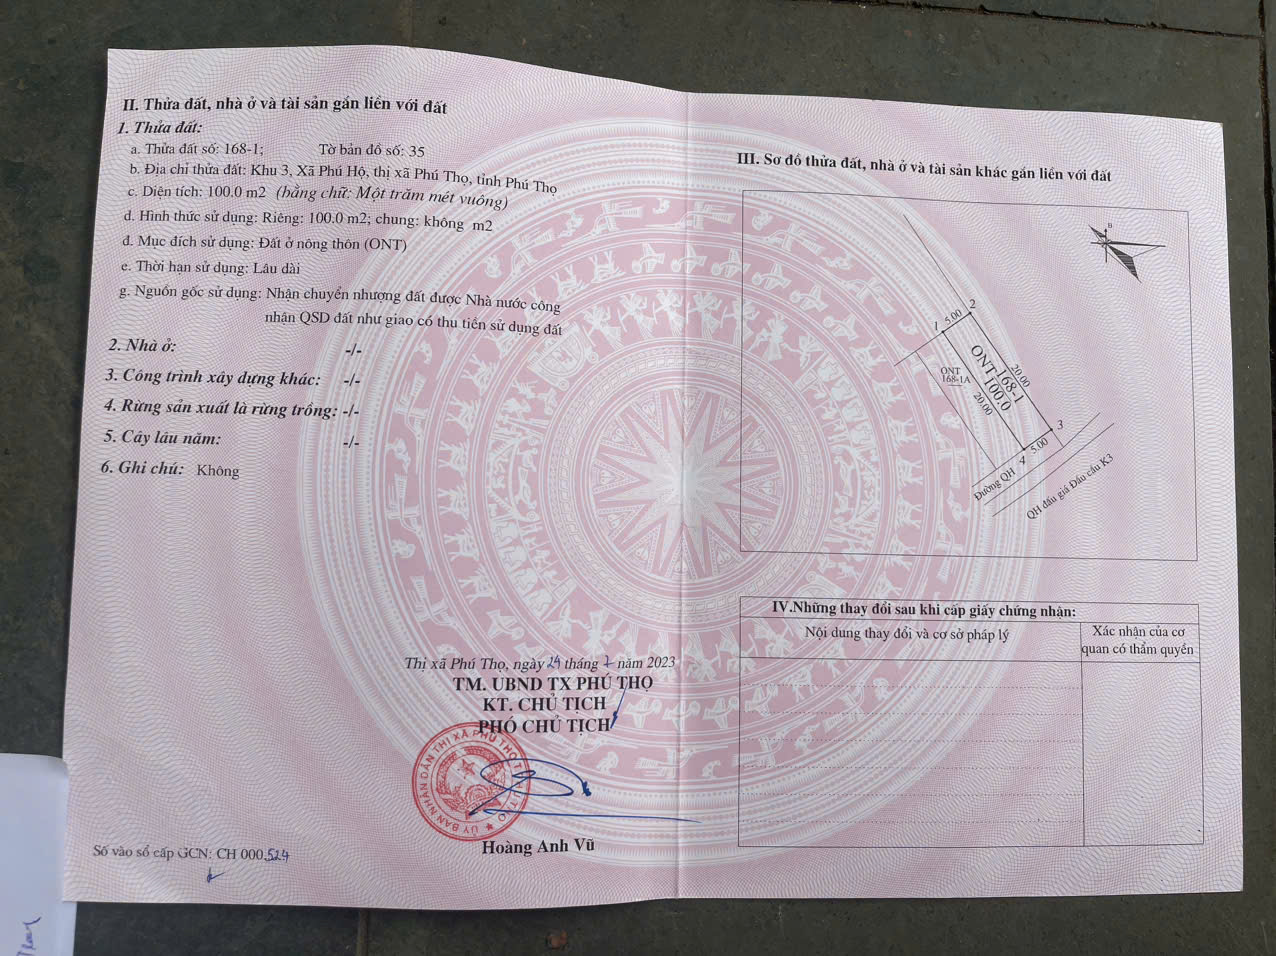 II. Thửa đất, nhà ở và tài sản gắn liền với đất
1. Thửa đất:
a. Thửa đất số: 168-1; Tờ bản đồ số: 35
b. Địa chỉ thửa đất: Khu 3, Xã Phú Hộ, thị xã Phú Thọ, tỉnh Phú Thọ
c. Diện tích: 100.0 m2 (bằng chữ: Một trăm mét vuông)
d. Hình thức sử dụng: Riêng: 100.0 m2; chung: không m2
đ. Mục đích sử dụng: Đất ở nông thôn (ONT)
e. Thời hạn sử dụng: Lâu dài
g. Nguồn gốc sử dụng: Nhận chuyển nhượng đất được Nhà nước công
nhận QSD đất như giao có thu tiền sử dụng đất
2. Nhà ở: -/-
3. Công trình xây dựng khác: -/-
4. Rừng sản xuất là rừng trồng: -/-
5. Cây lâu năm: -/-
6. Ghi chú: Không
Thị xã Phú Thọ, ngày 24 tháng 7 năm 2023
TM. UBND TX PHÚ THỌ
KT. CHỦ TỊCH
PHÓ CHỦ TỊCH
ỦY BAN NHÂN DÂN THỊ XÃ PHÚ THỌ T. PHÚ THỌ
Hoàng Anh Vũ
Số vào sổ cấp GCN: CH 000524
III. Sơ đồ thửa đất, nhà ở và tài sản khác gắn liền với đất
B
2
5.00
1
ONT
168-1A
ONT 168-1
100.0
20.00
20.00
3
5.00
4
Đường QH
QH đấu giá Đầu cầu K3
IV.Những thay đổi sau khi cấp giấy chứng nhận:
Nội dung thay đổi và cơ sở pháp lý
Xác nhận của cơ
quan có thẩm quyền